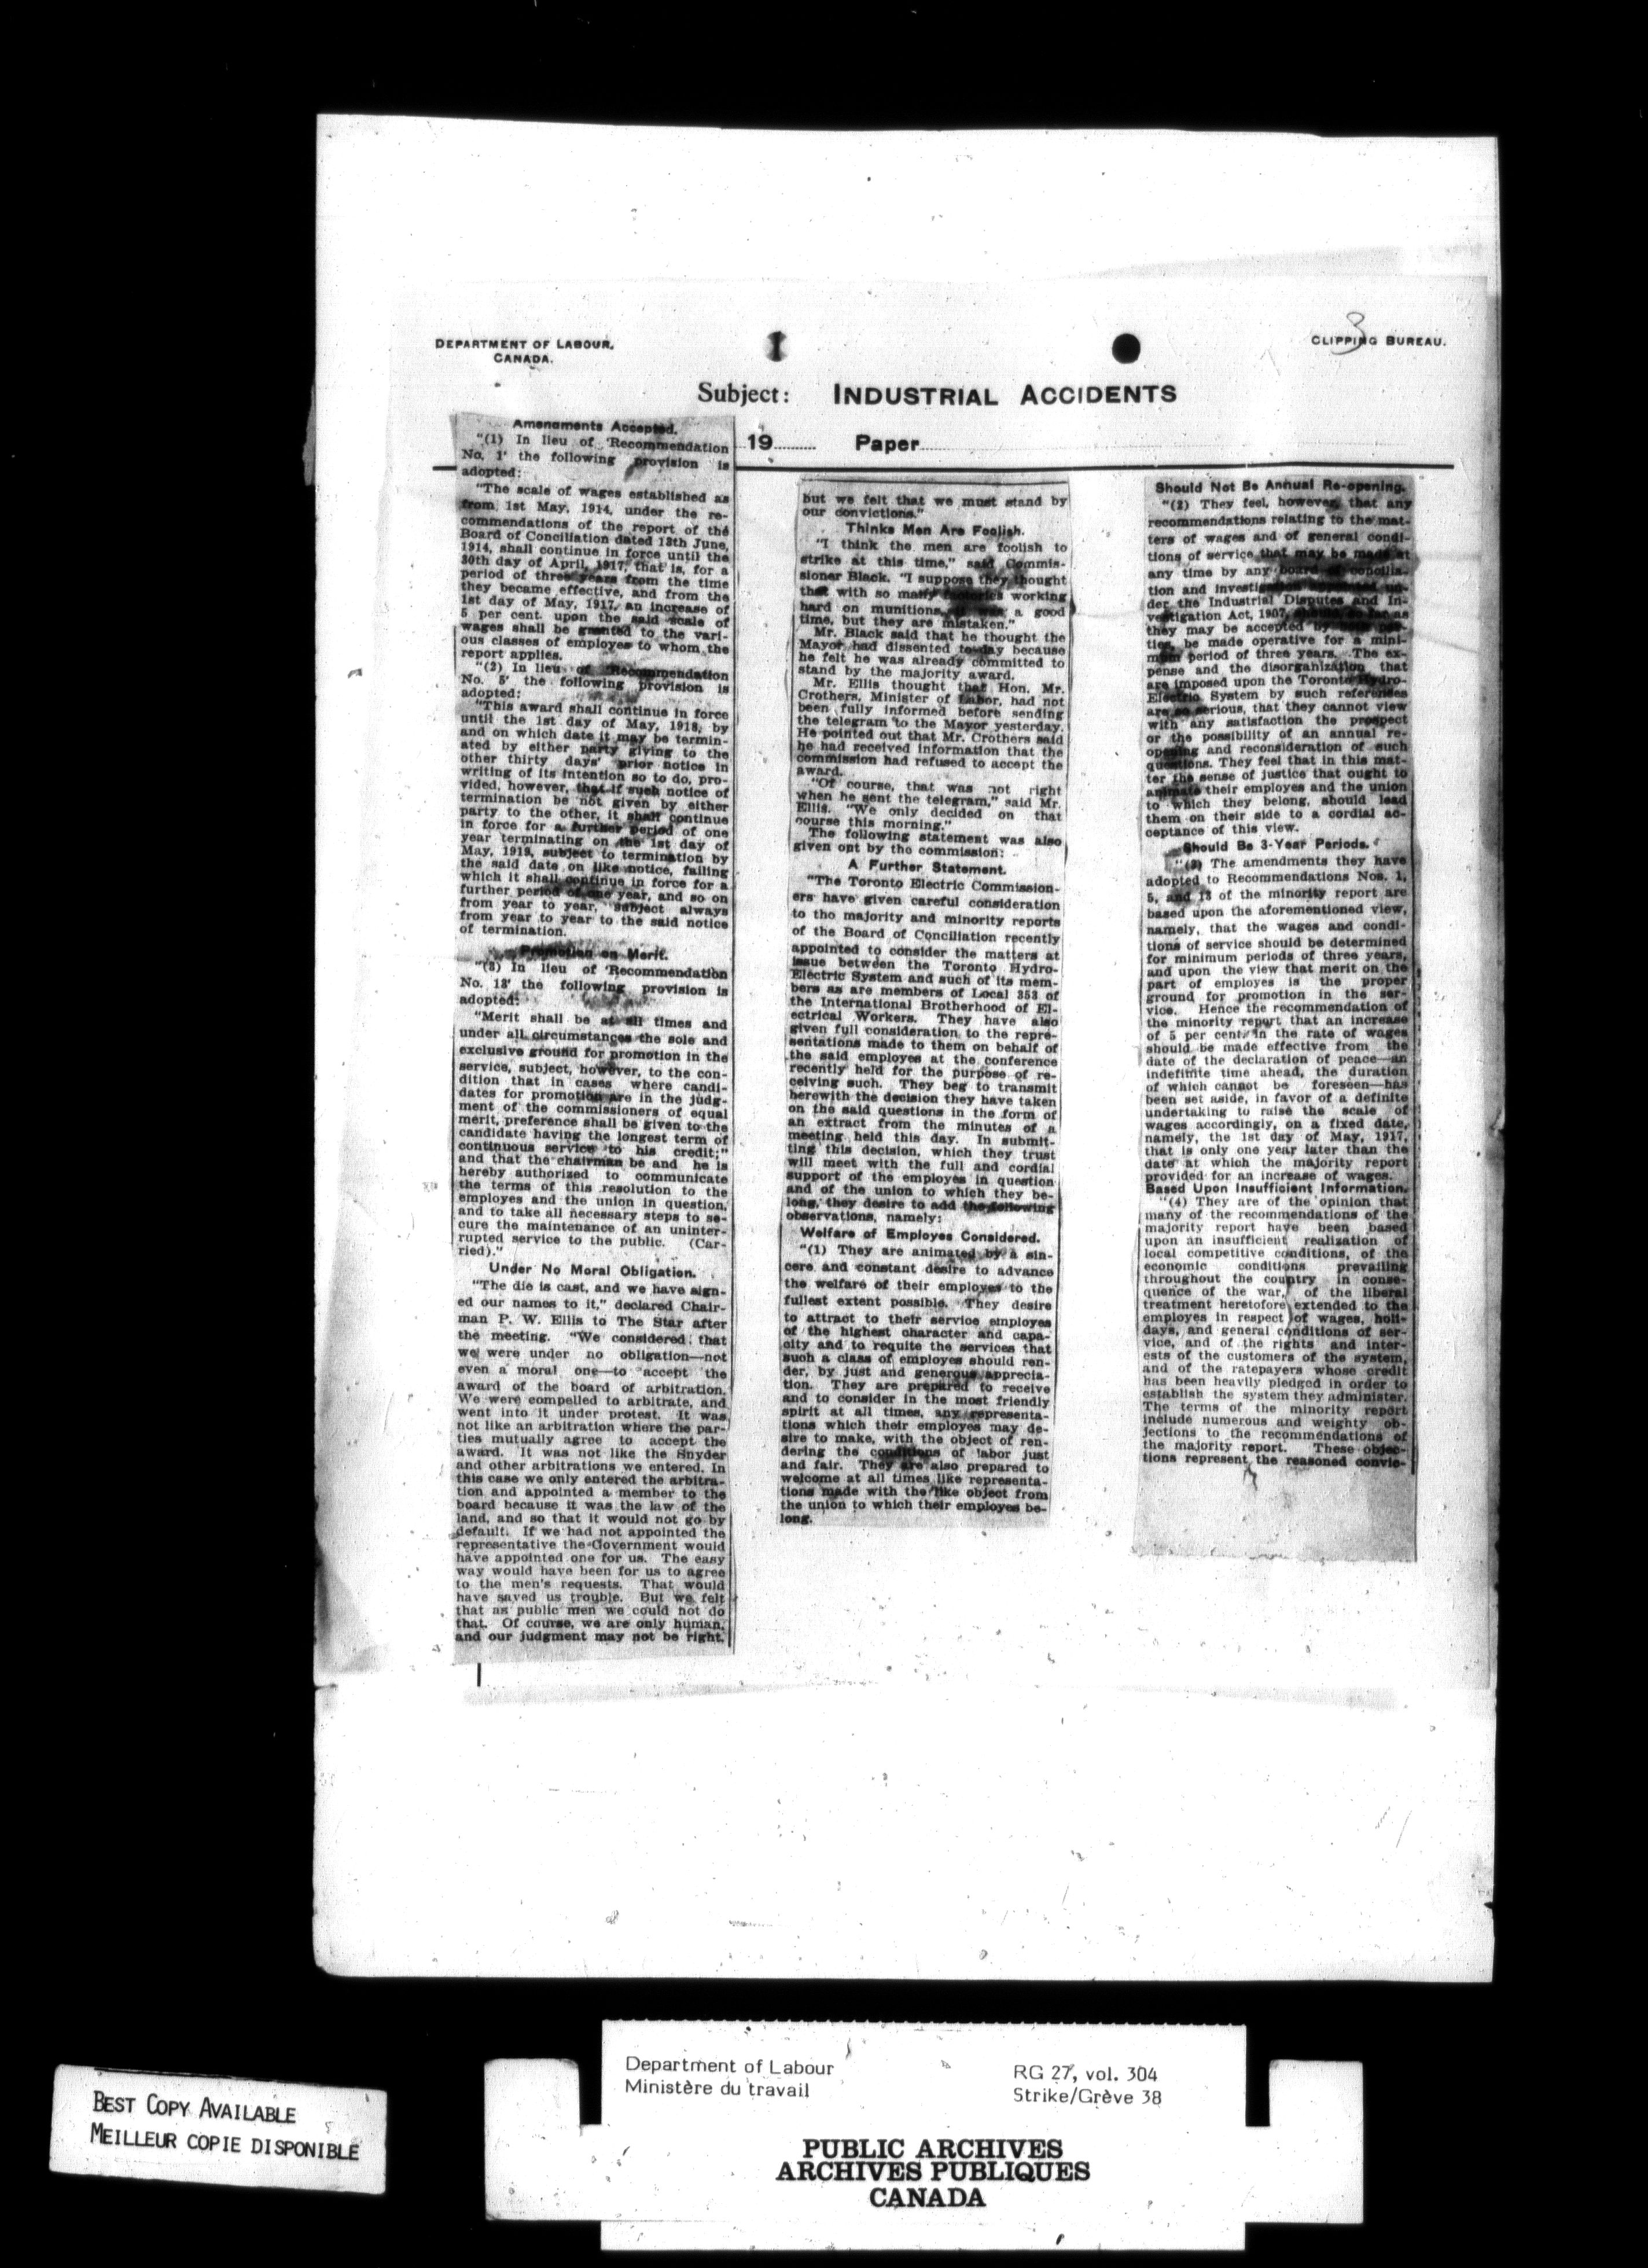 DEPARTMENT OF LABOUR.
CANADA.
3
CLIPPING BUREAU.
Subject: INDUSTRIAL ACCIDENTS
19 Paper
Amendments Accepted.
"(1) In lieu of 'Recommendation
No. 1' the following provision is
adopted:
"The scale of wages established as
from 1st May, 1914, under the re-
commendations of the report of the
Board of Conciliation dated 13th June,
1914, shall continue in force until the
30th day of April, 1917, that is, for a
period of three years from the time
they became effective, and from the
1st day of May, 1917, an increase of
5 per cent. upon the said scale of
wages shall be granted to the vari-
ous classes of employes to whom the
report applies.
"(2) In lieu of 'Recommendation
No. 5' the following provision is
adopted:
"This award shall continue in force
until the 1st day of May, 1918, by
and on which date it may be termin-
ated by either party giving to the
other thirty days' prior notice in
writing of its intention so to do, pro-
vided, however, that if such notice of
termination be not given by either
party to the other, it shall continue
in force for a further period of one
year terminating on the 1st day of
May, 1919, subject to termination by
the said date on like notice, failing
which it shall continue in force for a
further period of one year, and so on
from year to year, subject always
from year to year to the said notice
of termination.
Promotion on Merit.
"(3) In lieu of 'Recommendation
No. 13' the following provision is
adopted:
"Merit shall be at all times and
under all circumstances the sole and
exclusive ground for promotion in the
service, subject, however, to the con-
dition that in cases where candi-
dates for promotion are in the judg-
ment of the commissioners of equal
merit, preference shall be given to the
candidate having the longest term of
continuous service to his credit;"
and that the chairman be and he is
hereby authorized to communicate
the terms of this resolution to the
employes and the union in question,
and to take all necessary steps to se-
cure the maintenance of an uninter-
rupted service to the public. (Car-
ried)."
Under No Moral Obligation.
"The die is cast, and we have sign-
ed our names to it," declared Chair-
man P. W. Ellis to The Star after
the meeting. "We considered that
we were under no obligation—not
even a moral one—to accept the
award of the board of arbitration.
We were compelled to arbitrate, and
went into it under protest. It was
not like an arbitration where the par-
ties mutually agree to accept the
award. It was not like the Snyder
and other arbitrations we entered. In
this case we only entered the arbitra-
tion and appointed a member to the
board because it was the law of the
land, and so that it would not go by
default. If we had not appointed the
representative the Government would
have appointed one for us. The easy
way would have been for us to agree
to the men's requests. That would
have saved us trouble. But we felt
that as public men we could not do
that. Of course, we are only human,
and our judgment may not be right,
but we felt that we must stand by
our convictions."
Thinks Men Are Foolish.
"I think the men are foolish to
strike at this time," said Commis-
sioner Black. "I suppose they thought
that with so many factories working
hard on munitions, it was a good
time, but they are mistaken."
Mr. Black said that he thought the
Mayor had dissented to-day because
he felt he was already committed to
stand by the majority award.
Mr. Ellis thought that Hon. Mr.
Crothers, Minister of Labor, had not
been fully informed before sending
the telegram to the Mayor yesterday.
He pointed out that Mr. Crothers said
he had received information that the
commission had refused to accept the
award.
"Of course, that was not right
when he sent the telegram," said Mr.
Ellis. "We only decided on that
course this morning."
The following statement was also
given opt by the commission:
A Further Statement.
"The Toronto Electric Commission-
ers have given careful consideration
to the majority and minority reports
of the Board of Conciliation recently
appointed to consider the matters at
issue between the Toronto Hydro-
Electric System and such of its mem-
bers as are members of Local 353 of
the International Brotherhood of El-
ectrical Workers. They have also
given full consideration to the repre-
sentations made to them on behalf of
the said employes at the conference
recently held for the purpose of re-
ceiving such. They beg to transmit
herewith the decision they have taken
on the said questions in the form of
an extract from the minutes of a
meeting held this day. In submit-
ting this decision, which they trust
will meet with the full and cordial
support of the employes in question
and of the union to which they be-
long, they desire to add the following
observations, namely:
Welfare of Employes Considered.
"(1) They are animated by a sin-
cere and constant desire to advance
the welfare of their employes to the
fullest extent possible. They desire
to attract to their service employes
of the highest character and capa-
city and to requite the services that
such a class of employes should ren-
der, by just and generous apprecia-
tion. They are prepared to receive
and to consider in the most friendly
spirit at all times, any representa-
tions which their employes may de-
sire to make, with the object of ren-
dering the conditions of labor just
and fair. They are also prepared to
welcome at all times like representa-
tions made with the like object from
the union to which their employes be-
long.
Should Not Be Annual Re-opening.
"(2) They feel, however, that any
recommendations relating to the mat-
ters of wages and of general condi-
tions of service that may be made at
any time by any board of concilia-
tion and un-
der the Industrial Disputes and In-
vestigation Act, 1907, as
they may be accepted by par-
ties, be made operative for a mini-
mum period of three years. The ex-
pense and the disorganization that
are imposed upon the Toronto Hydro-
Electric System by such references
are so serious, that they cannot view
with any satisfaction the prospect
or the possibility of an annual re-
opening and reconsideration of such
questions. They feel that in this mat-
ter the sense of justice that ought to
animate their employes and the union
to which they belong, should lead
them on their side to a cordial ac-
ceptance of this view.
Should Be 3-Year Periods.
"(3) The amendments they have
adopted to Recommendations Nos. 1,
5, and 13 of the minority report are
based upon the aforementioned view,
namely, that the wages and condi-
tions of service should be determined
for minimum periods of three years,
and upon the view that merit on the
part of employes is the proper
ground for promotion in the ser-
vice. Hence the recommendation of
the minority report that an increase
of 5 per cent. in the rate of wages
should be made effective from the
date of the declaration of peace—an
indefinite time ahead, the duration
of which cannot be foreseen—has
been set aside, in favor of a definite
undertaking to raise the scale of
wages accordingly, on a fixed date,
namely, the 1st day of May, 1917,
that is only one year later than the
date at which the majority report
provided for an increase of wages.
Based Upon Insufficient Information.
"(4) They are of the opinion that
many of the recommendations of the
majority report have been based
upon an insufficient realization of
local competitive conditions, of the
economic conditions prevailing
throughout the country in conse-
quence of the war, of the liberal
treatment heretofore extended to the
employes in respect of wages, holi-
days, and general conditions of ser-
vice, and of the rights and inter-
ests of the customers of the system,
and of the ratepayers whose credit
has been heavily pledged in order to
establish the system they administer.
The terms of the minority report
include numerous and weighty ob-
jections to the recommendations of
the majority report. These objec-
tions represent the reasoned convic-
Department of Labour
Ministère du travail
RG 27, vol. 304
Strike/Grève 38
BEST COPY AVAILABLE
MEILLEUR COPIE DISPONIBLE
PUBLIC ARCHIVES
ARCHIVES PUBLIQUES
CANADA